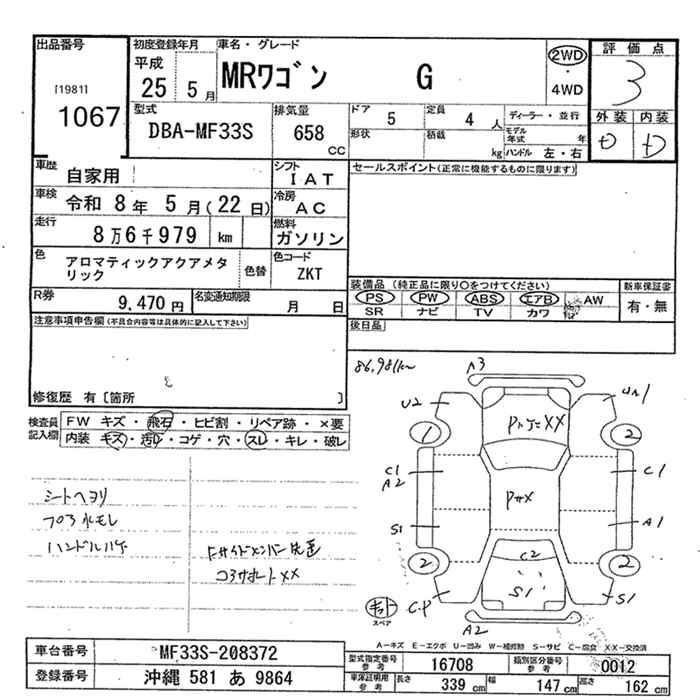 出品番号
[1981]
1067
初度登録年月
平成
25 5月
車名・グレード
MRワゴン G
2WD
・
4WD
評価点
3
外装 内装
D D
型式
DBA-MF33S
排気量
658
CC
ドア
5
定員
4 人
形状
積載
kg
ディーラー・並行
モデル年式 年
ハンドル 左・右
車歴
自家用
シフト
IAT
車検
令和 8年 5月(22日)
冷房
AC
走行
8万6千979 km
燃料
ガソリン
色
アロマティックアクアメタリック
色替
色コード
ZKT
R券
9,470円
名変通知期限
月 日
セールスポイント(正常に機能するものに限ります)
装備品 (純正品に限り○をつけてください)
PS PW ABS エアB AW
SR ナビ TV カワ
新車保証書
有・無
後日品
注意事項申告欄(不具合内容等は具体的に記入して下さい)
修復歴 有 [箇所 ]
検査員記入欄
FW キズ・飛石・ヒビ割・リペア跡・×要
内装 キズ・汚レ・コゲ・穴・スレ・キレ・破レ
シートヘタリ
フロア水モレ
ハンドルハゲ
コアサポートXX
86,981km
A3
U2
1
2
C1
A2
C1
S1
A1
2
2
C2
S1
S1
A2
スペア
A-キズ E-エクボ U-凹み W-補修跡 S-サビ C-腐食 XX-交換済
車台番号
MF33S-208372
登録番号
沖縄 581 あ 9864
型式指定番号
参考
16708
類別区分番号
参考
0012
車庫証明用
参考
長さ
339 cm
幅
147 cm
高さ
162 cm